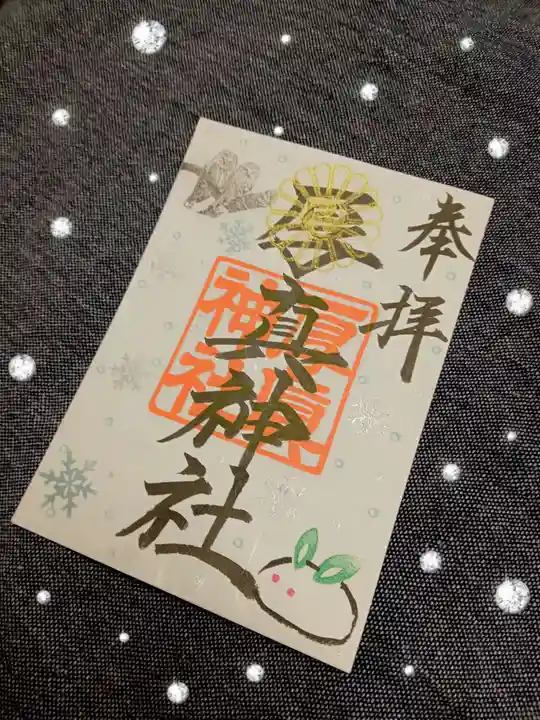 奉拝
厚真神社
厚真
神社